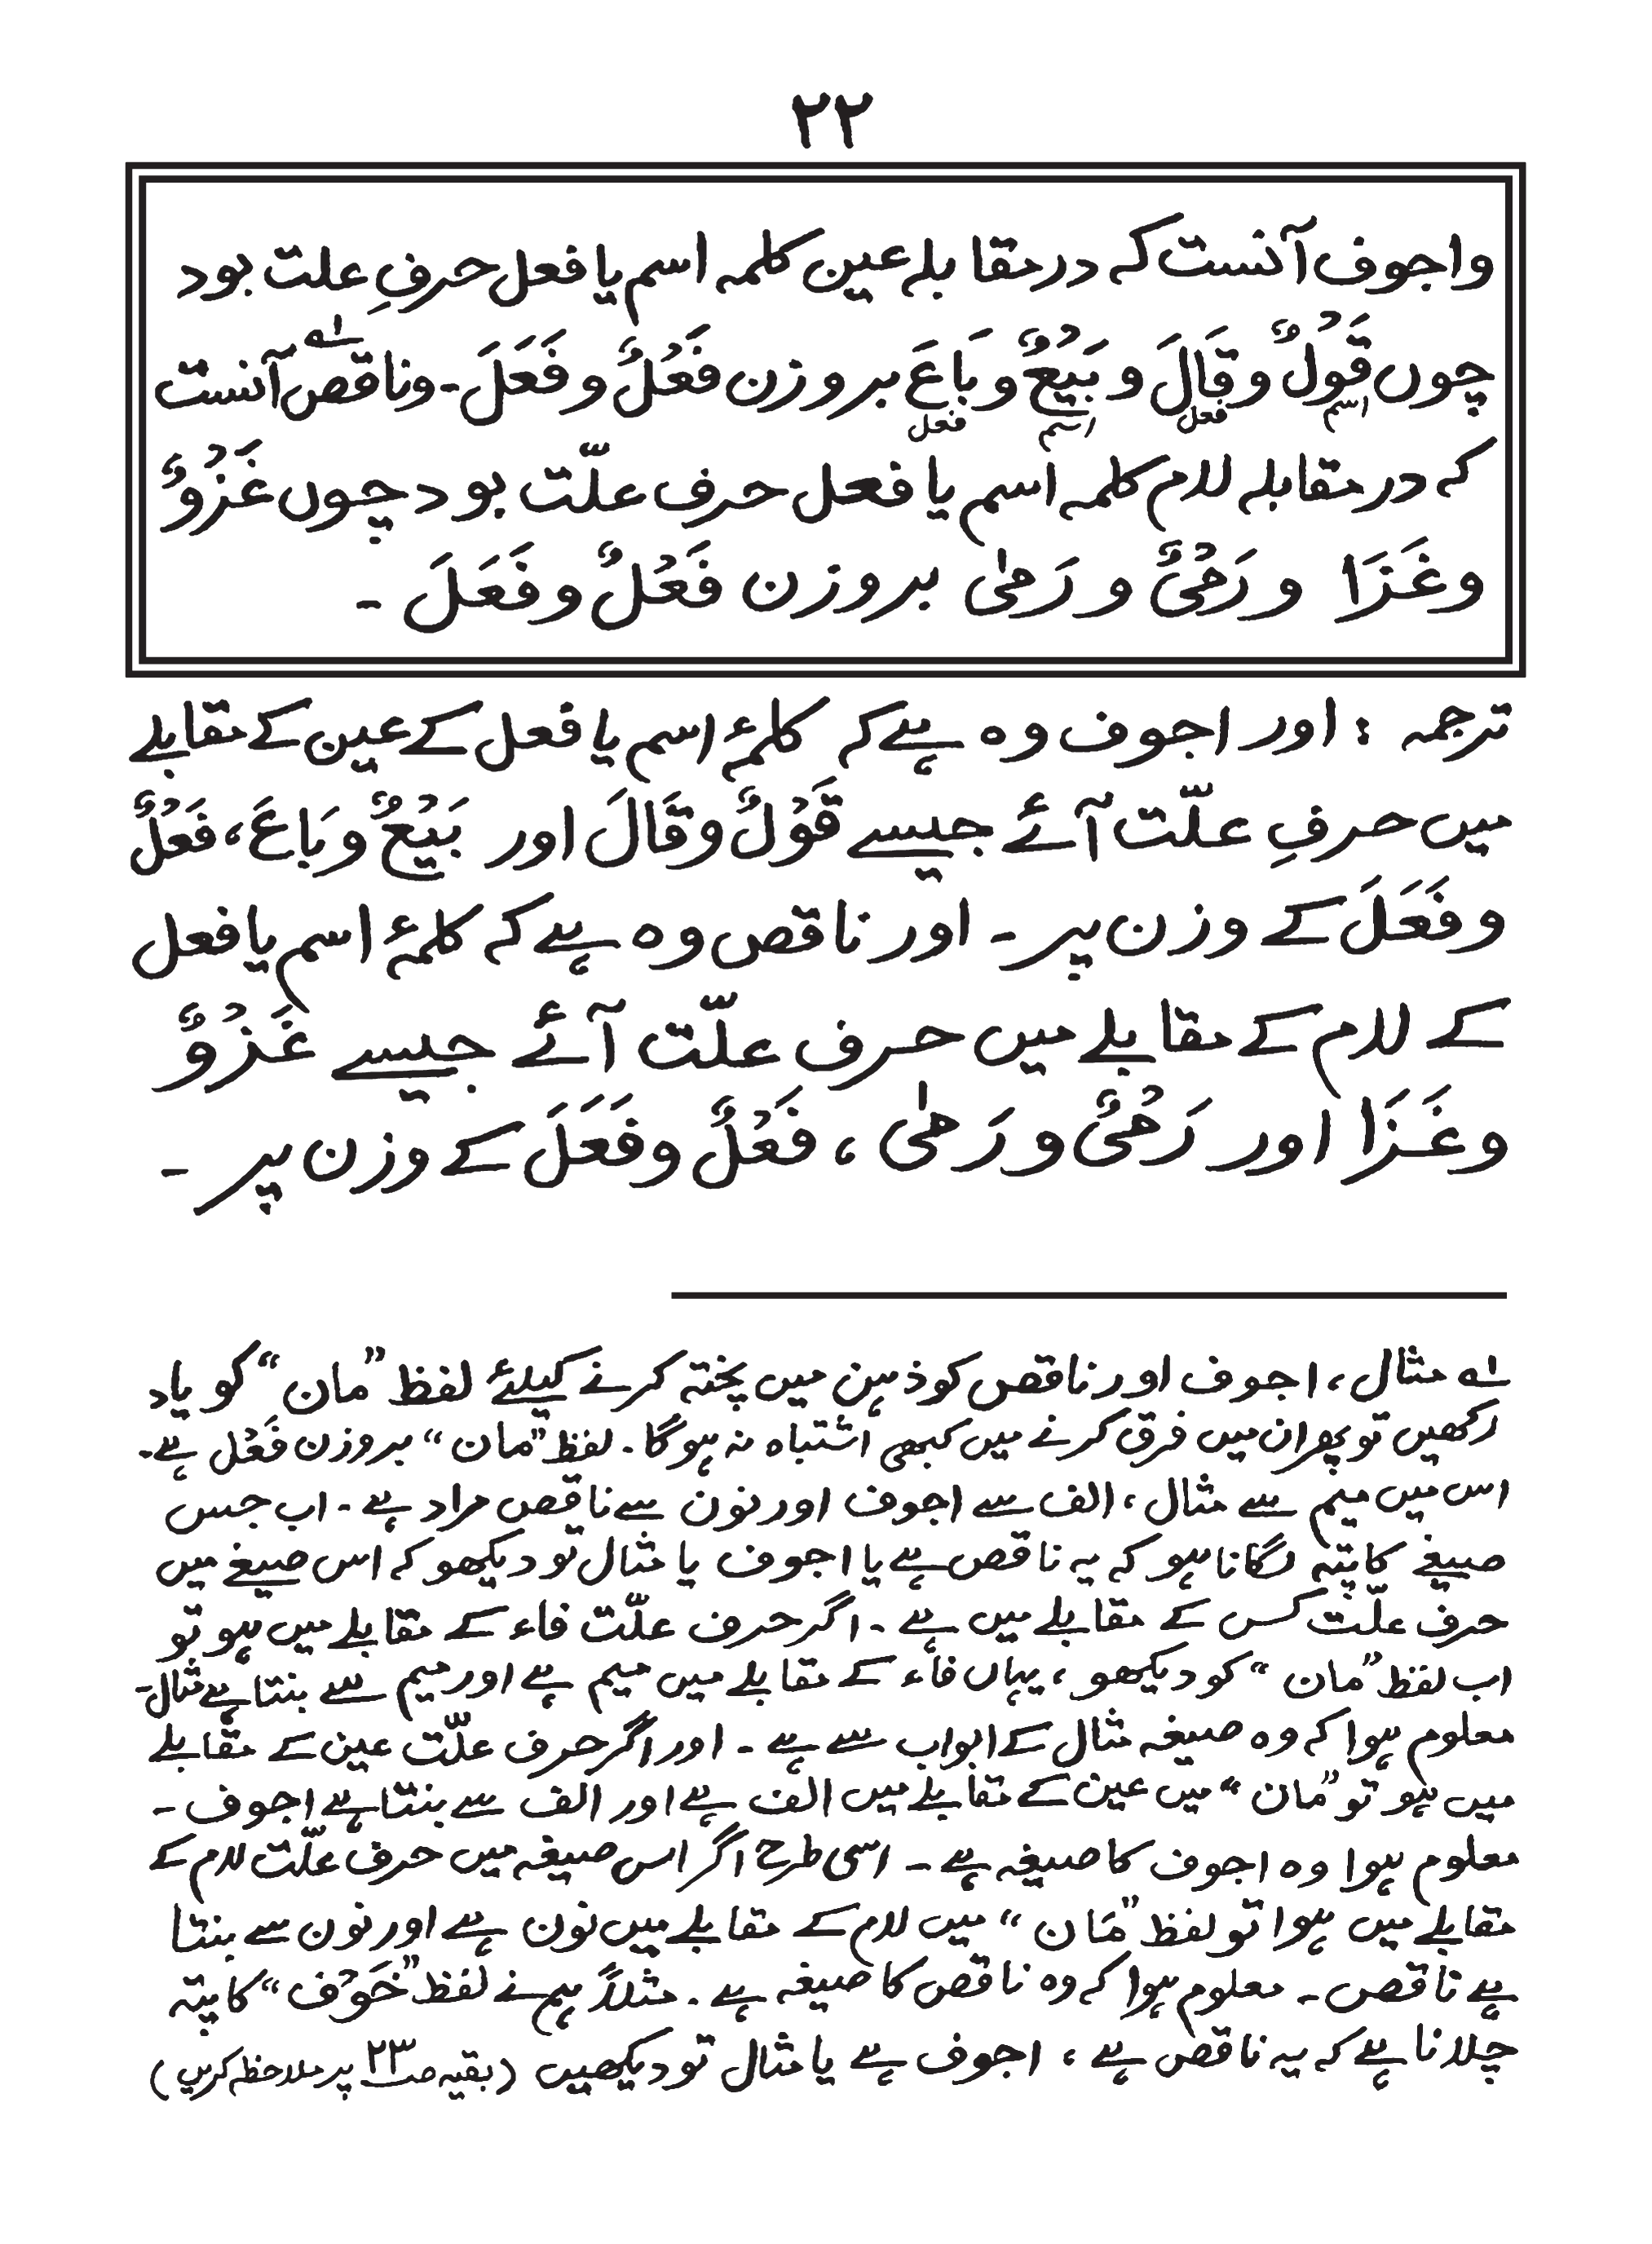 ۲۲
واجوف آنست که در مقابله عین کلمه اسم یا فعل حرفِ علت بود
چوں قَوْلٌ و قَالَ و بَیْعٌ و بَاعَ بروزن فَعْلٌ و فَعَلَ۔ وناقص ؎۱ آنست
اسم فعل اسم فعل
که در مقابله لام کلمه اسم یا فعل حرف علّت بود چوں غَزْوٌ
وغَزَا ورَمْیٌ و رَمٰی بروزن فَعْلٌ و فَعَلَ ۔
ترجمہ : اور اجوف وہ ہے کہ کلمۂ اسم یا فعل کے عین کے مقابلے
میں حرفِ علّت آئے جیسے قَوْلٌ وقَالَ اور بَیْعٌ وبَاعَ، فَعْلٌ
وفَعَلَ کے وزن پر ۔ اور ناقص وہ ہے کہ کلمۂ اسم یا فعل
کے لام کے مقابلے میں حرف علّت آئے جیسے غَزْوٌ
وغَزَا اور رَمْیٌ و رَمٰی ، فَعْلٌ وفَعَلَ کے وزن پر ۔
؎۱ مثال، اجوف اور ناقص کو ذہن میں پختہ کرنے کیلئے لفظ ”مان“ کو یاد
رکھیں تو پھر ان میں فرق کرنے میں کبھی اشتباہ نہ ہوگا۔ لفظ ”مان“ بروزن فَعْل ہے۔
اس میں میم سے مثال، الف سے اجوف اور نون سے ناقص مراد ہے ۔ اب جس
صیغے کا پتہ لگانا ہو کہ یہ ناقص ہے یا اجوف یا مثال تو دیکھو کہ اس صیغے میں
حرف علّت کس کے مقابلے میں ہے ۔ اگر حرف علّت فاء کے مقابلے میں ہو تو
اب لفظ ”مان“ کو دیکھو، یہاں فاء کے مقابلے میں میم ہے اور میم سے بنتا ہے مثال۔
معلوم ہوا کہ وہ صیغہ مثال کے ابواب سے ہے ۔ اور اگر حرف علّت عین کے مقابلے
میں ہو تو ”مان“ میں عین کے مقابلے میں الف ہے اور الف سے بنتا ہے اجوف ۔
معلوم ہوا وہ اجوف کا صیغہ ہے ۔ اسی طرح اگر اس صیغہ میں حرف علّت لام کے
مقابلے میں ہوا تو لفظ ”مَان“ میں لام کے مقابلے میں نون ہے اور نون سے بنتا
ہے ناقص ۔ معلوم ہوا کہ وہ ناقص کا صیغہ ہے ۔ مثلاً ہم نے لفظ ”خَوْف“ کا پتہ
چلانا ہے کہ یہ ناقص ہے ، اجوف ہے یا مثال تو دیکھیں (بقیہ صـ ۲۳ پر ملاحظہ کریں)